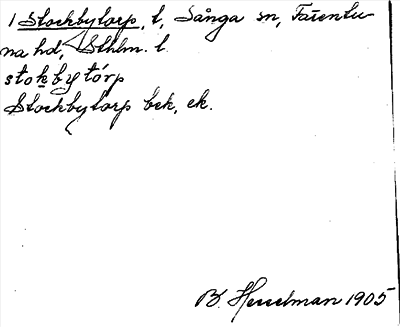 1 Stockbytorp, t, Sånga sn, Färentu-
na hd, Sthlm. l.
stokbytórp
Stockbytorp bek, ek.
B. Hesselman 1905